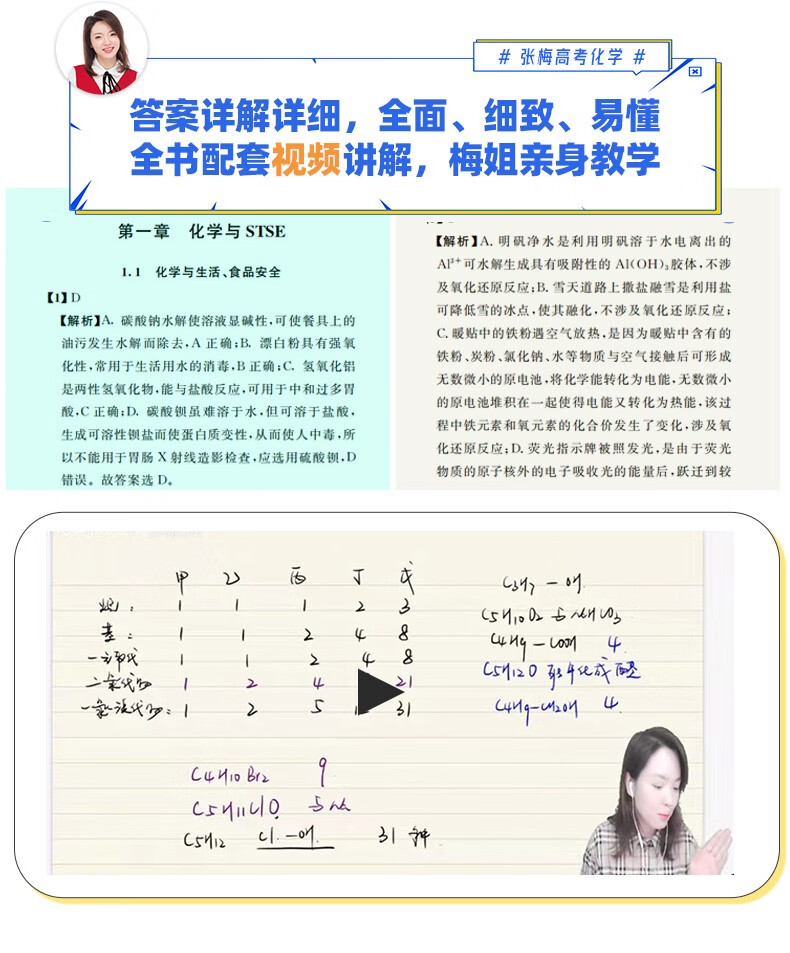 # 张梅高考化学 #
答案详解详细，全面、细致、易懂
全书配套视频讲解，梅姐亲身教学
第一章 化学与STSE
1.1 化学与生活、食品安全
【1】D
【解析】A. 碳酸钠水解使溶液显碱性,可使餐具上的
油污发生水解而除去,A 正确;B. 漂白粉具有强氧
化性,常用于生活用水的消毒,B正确;C. 氢氧化铝
是两性氢氧化物,能与盐酸反应,可用于中和过多胃
酸,C 正确;D. 碳酸钡虽难溶于水,但可溶于盐酸,
生成可溶性钡盐而使蛋白质变性,从而使人中毒,所
以不能用于胃肠 X 射线造影检查,应选用硫酸钡,D
错误。故答案选 D。
【解析】A. 明矾净水是利用明矾溶于水电离出的
Al³⁺可水解生成具有吸附性的 Al(OH)₃胶体,不涉
及氧化还原反应;B. 雪天道路上撒盐融雪是利用盐
可降低雪的冰点,使其融化,不涉及氧化还原反应;
C. 暖贴中的铁粉遇空气放热,是因为暖贴中含有的
铁粉、炭粉、氯化钠、水等物质与空气接触后可形成
无数微小的原电池,将化学能转化为电能,无数微小
的原电池堆积在一起使得电能又转化为热能,该过
程中铁元素和氧元素的化合价发生了变化,涉及氧
化还原反应;D. 荧光指示牌被照发光,是由于荧光
物质的原子核外的电子吸收光的能量后,跃迁到较
甲 乙 丙 丁 戊
烷: 1 1 1 2 3
基: 1 1 2 4 8
一卤代 1 1 2 4 8
二氯代物 1 2 4 21
一氯一溴代物: 1 2 5 31
C4H10Br2 9
C5H11ClO 与Na
C5H12 Cl. —OH. 31 种
C3H7 — OH.
C5H10O2 与NaHCO3
C4H9 — COOH 4.
C5H12O 可氧化成醛
C4H9—CH2OH 4.